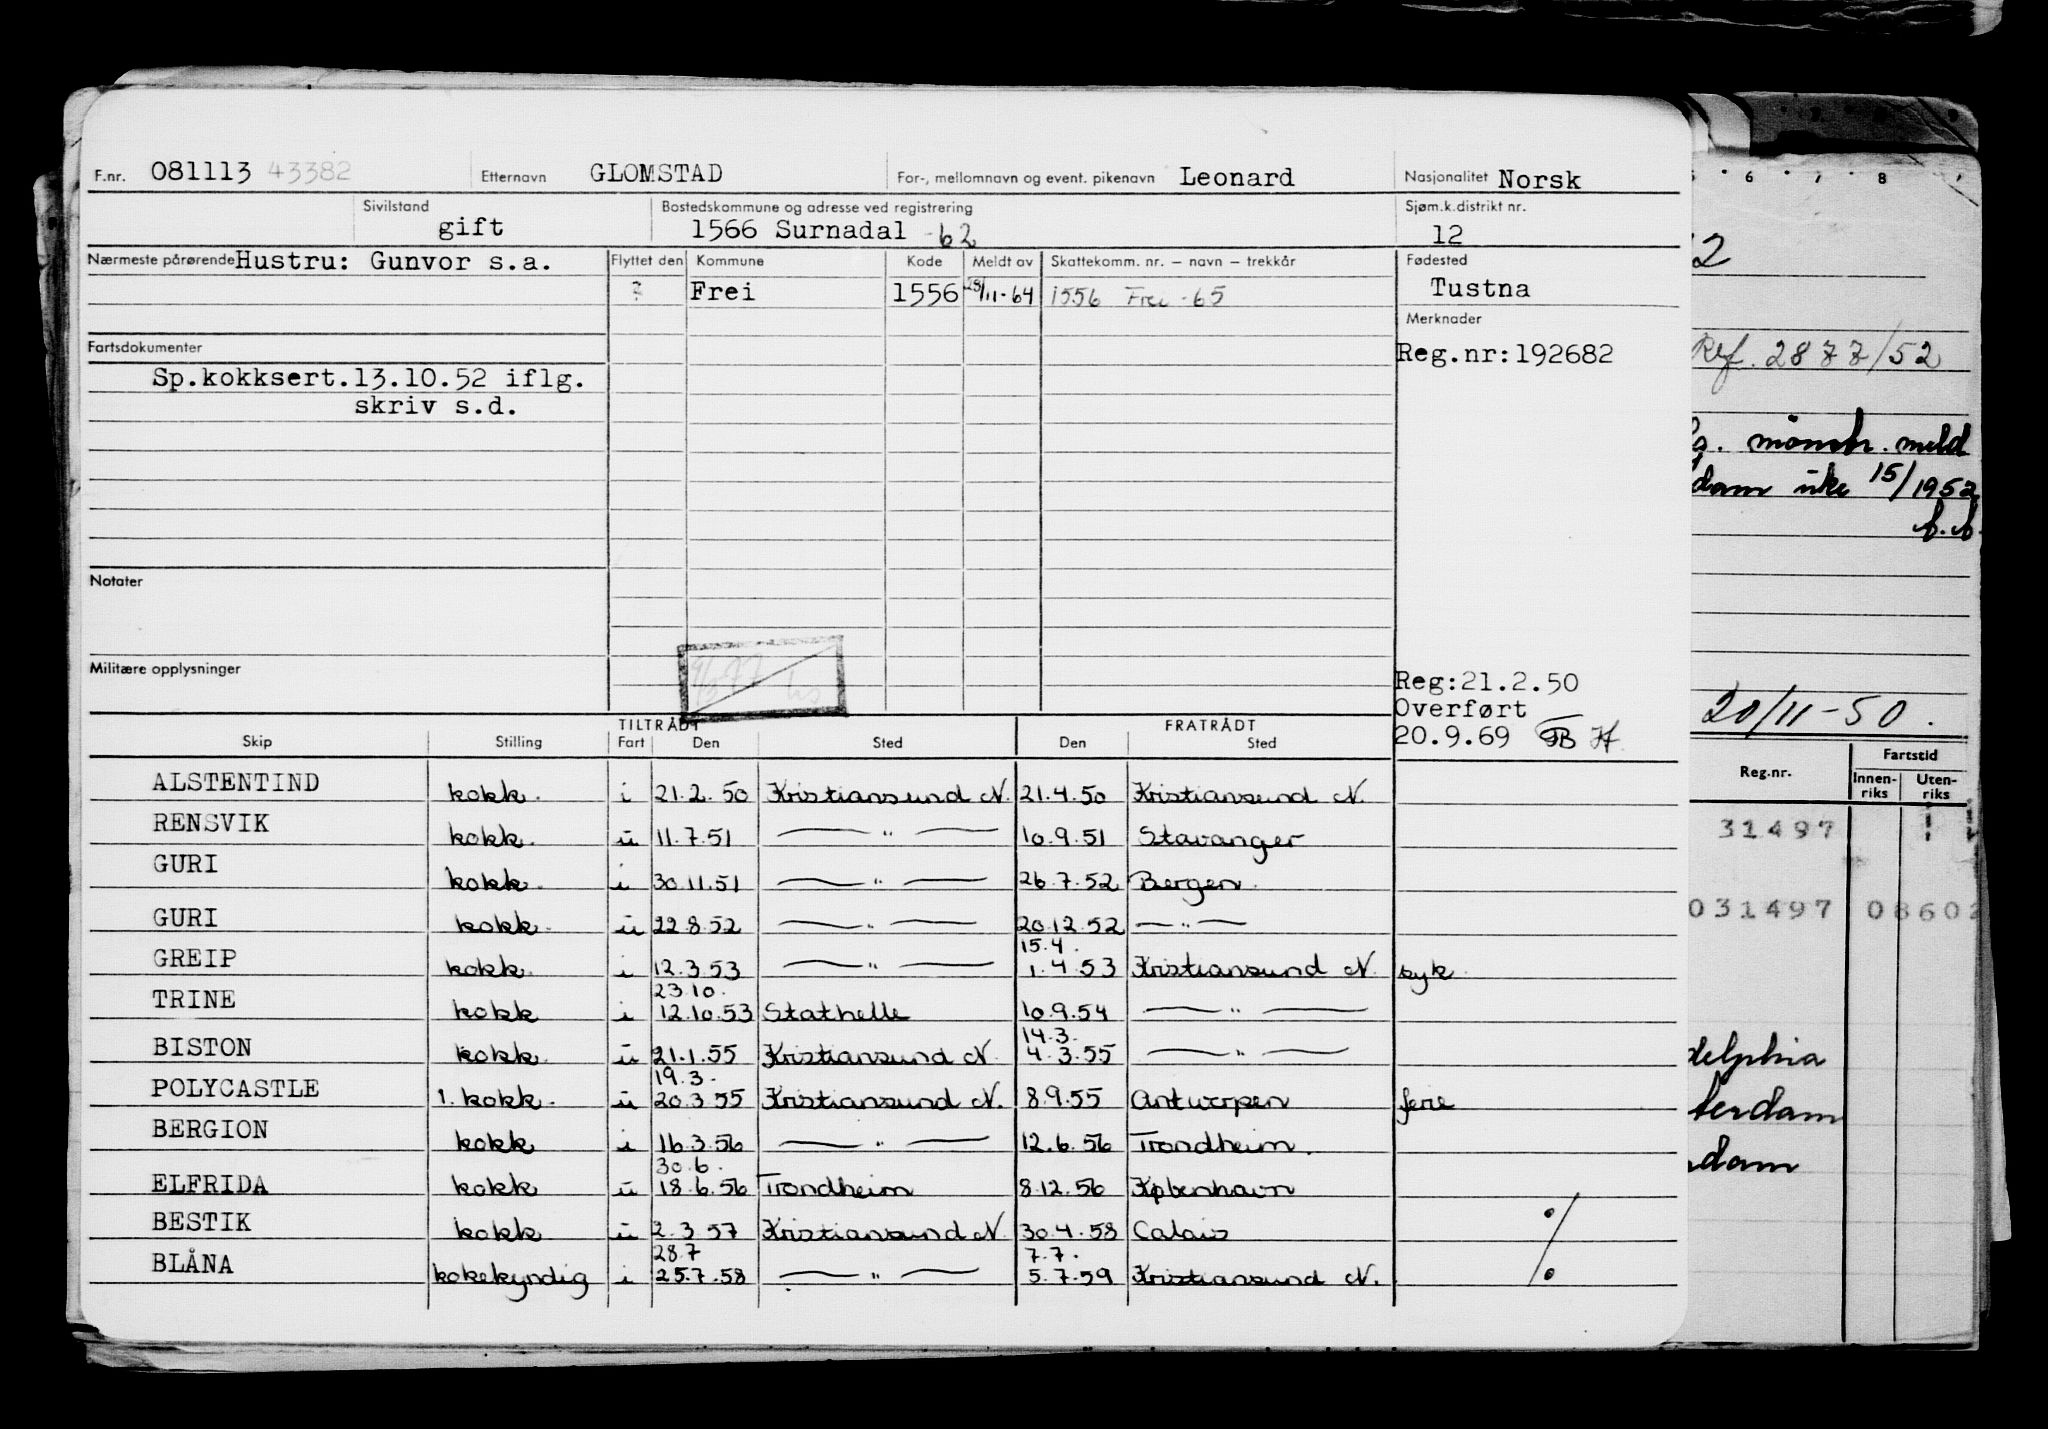 F.nr. 081113 43382 Etternavn GLOMSTAD For-, mellomnavn og event. pikenavn Leonard Nasjonalitet Norsk
Sivilstand gift Bostedskommune og adresse ved registrering 1566 Surnadal -62 Sjøm.k.distrikt nr. 12
Nærmeste pårørende Hustru: Gunvor s.a. Flyttet den Kommune Kode Meldt av Skattekomm. nr. – navn – trekkår Fødested
? Frei 1556 28/11-64 1556 Frei -65 Tustna
Merknader
Fartsdokumenter Reg.nr:192682
Sp.kokksert.13.10.52 iflg.
skriv s.d.
Notater
Militære opplysninger
Reg:21.2.50
Overført
20.9.69
TILTRÅDT FRATRÅDT
Skip Stilling Fart Den Sted Den Sted
ALSTENTIND kokk. i 21.2.50 Kristiansund N. 21.4.50 Kristiansund N.
RENSVIK kokk. u 11.7.51 — " — 10.9.51 Stavanger
GURI kokk. i 30.11.51 — " — 26.7.52 Bergen.
GURI kokk. u 22.8.52 — " — 20.12.52 — " —
15.4.
GREIP kokk. i 12.3.53 — " — 1.4.53 Kristiansund N. syk.
23.10.
TRINE kokk i 12.10.53 Stathelle 10.9.54 — " —
14.3.
BISTON kokk. u 21.1.55 Kristiansund N. 4.3.55 — " —
19.3.
POLYCASTLE 1. kokk. u 20.3.55 Kristiansund N. 8.9.55 Antwerpen ferie
BERGION kokk i 16.3.56 — " — 12.6.56 Trondheim.
30.6.
ELFRIDA kokk u 18.6.56 Trondheim 8.12.56 København
BESTIK kokk u 2.3.57 Kristiansund N. 30.4.58 Calais
28.7 7.7.
BLÅNA kokekyndig i 25.7.58 — " — 5.7.59 Kristiansund N.
5 6 7 8
2
Ref. 2877/52
mönstr. meld
dam uke 15/1952
b.b.
20/11-50.
Reg.nr. Fartstid
Innen-riks Uten-riks
31497
031497 08602
delphia
terdam
dam